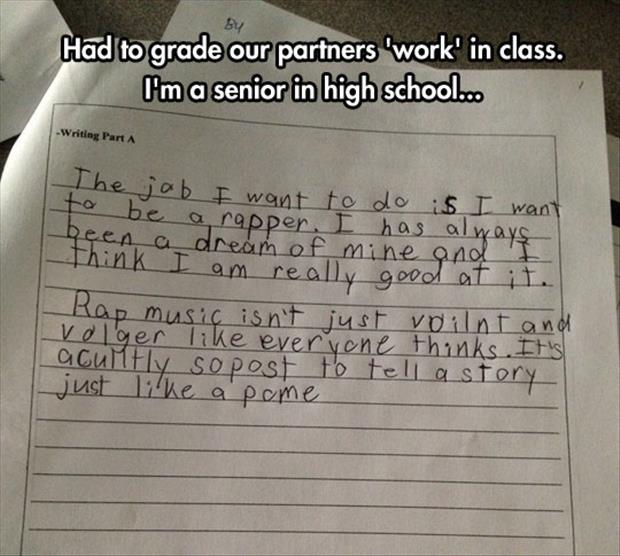 By
Had to grade our partners 'work' in class.
I'm a senior in high school...
-Writing Part A
The job I want to do is I want
to be a rapper. I has always
been a dream of mine and I
think I am really good at it.
Rap music isn't just voilnt and
volger like everyone thinks. It's
aculltly sopost to tell a story
just like a pome